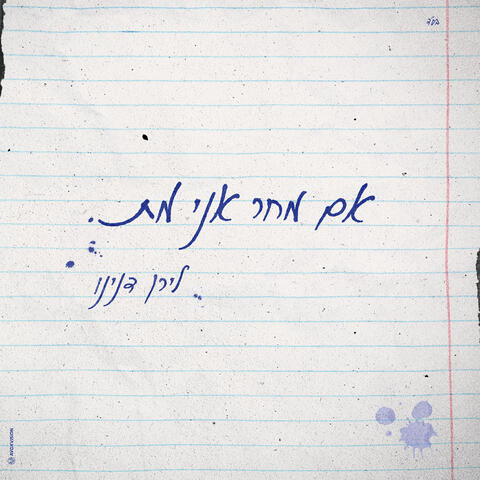 בס"ד
אם מחר אני מת.
לירן דנינו
AVGRVISION